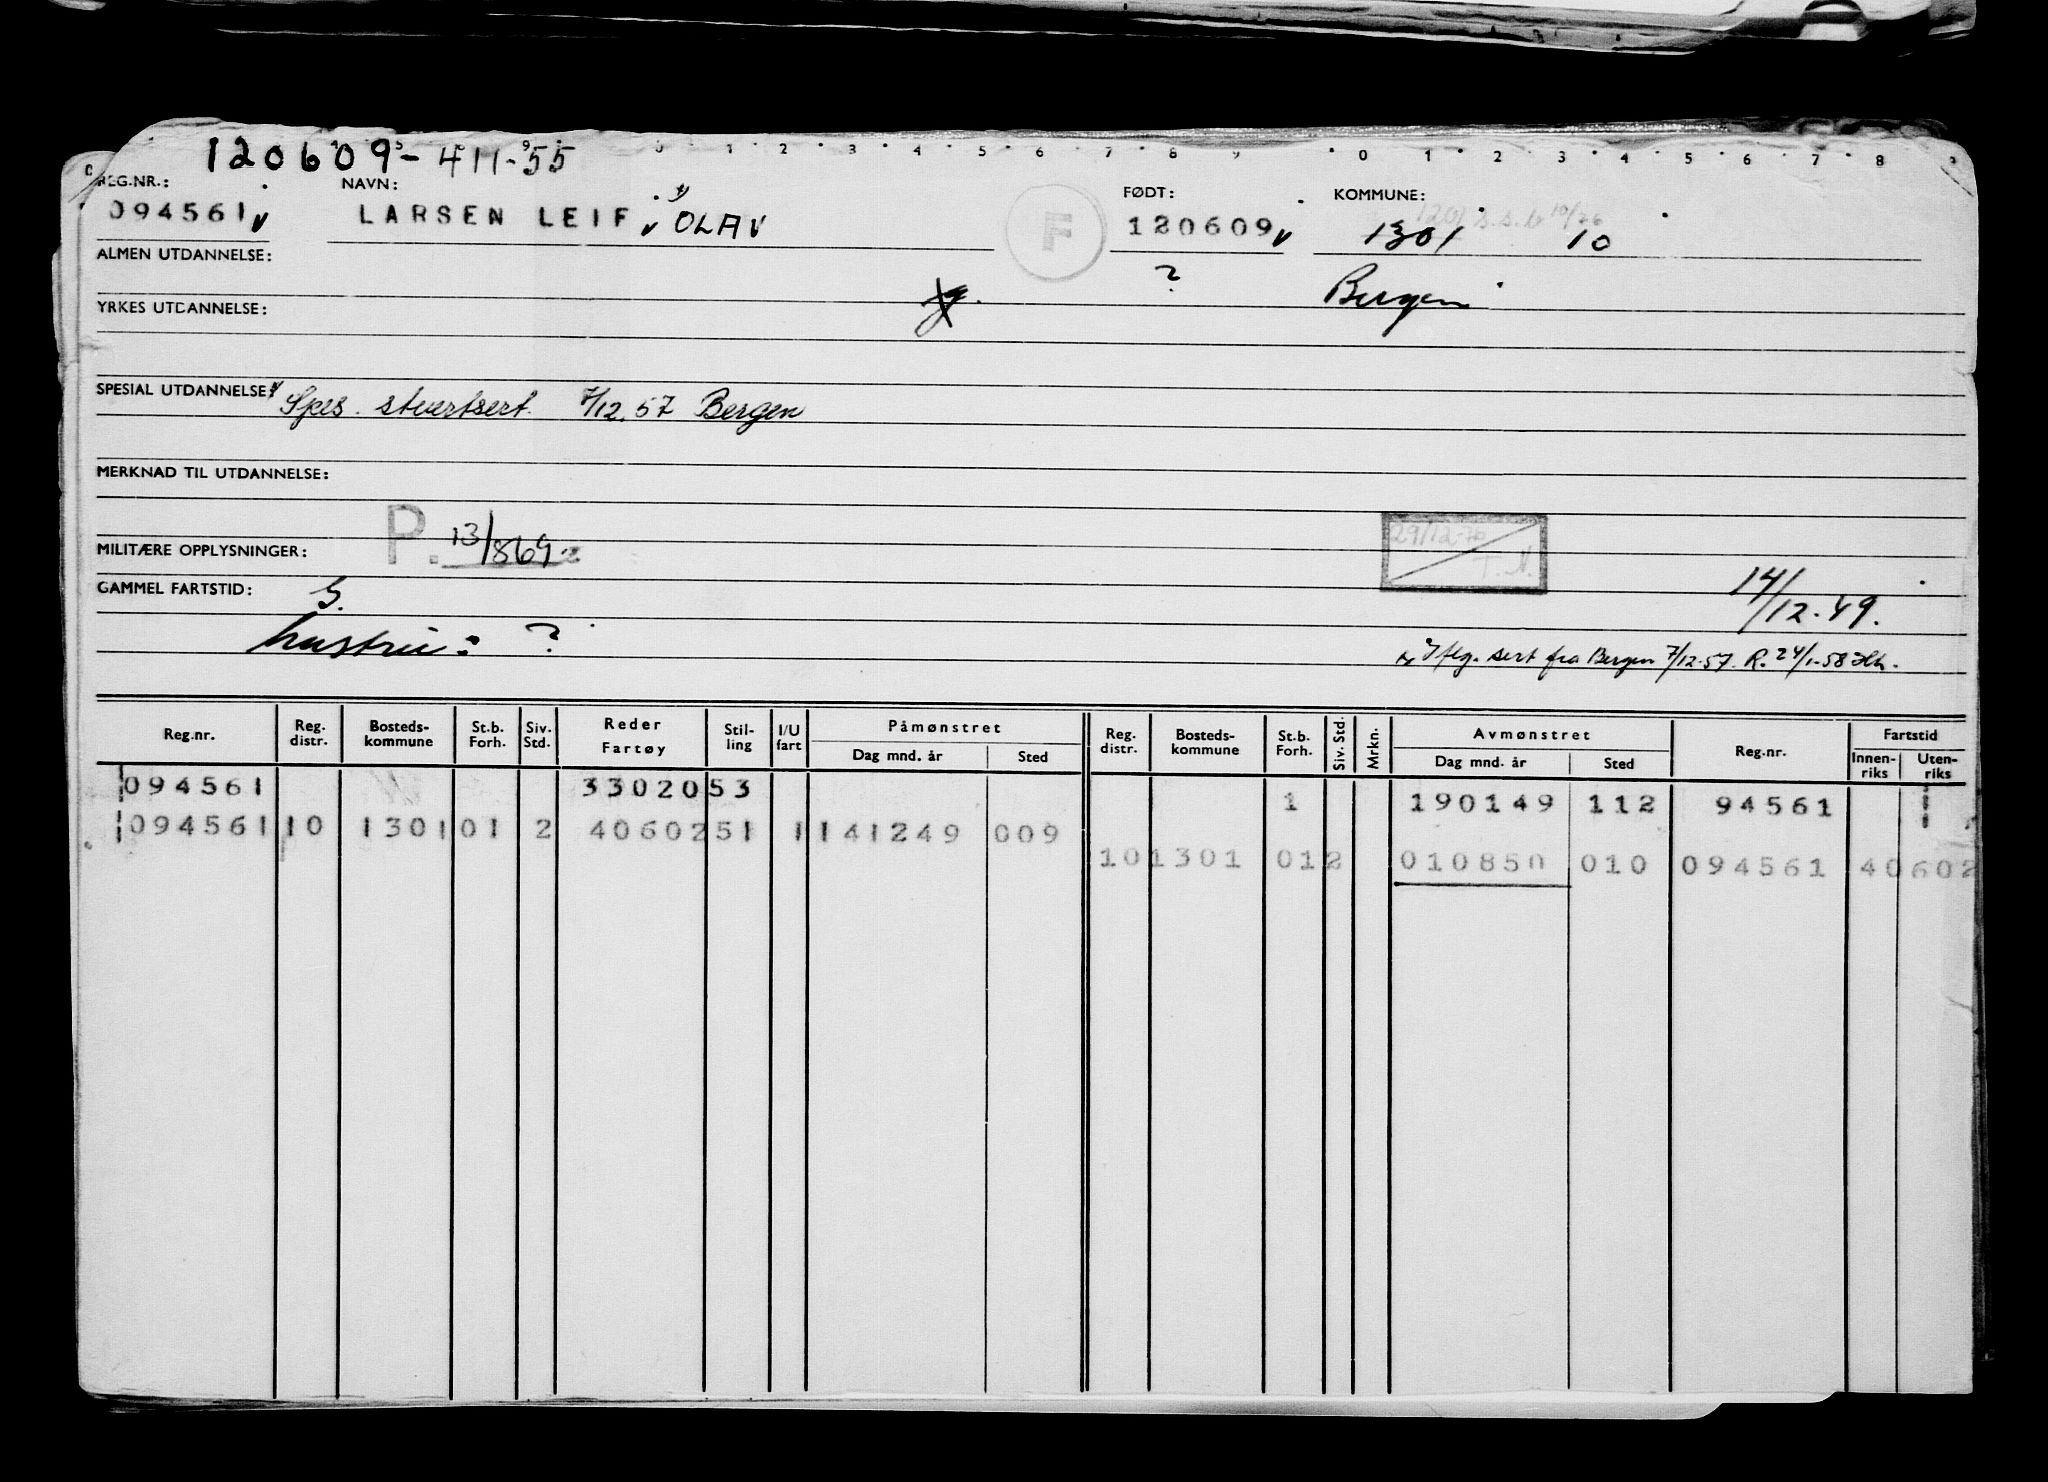 120609-411-55
0 1 2 3 4 5 6 7 8 9 0 1 2 3 4 5 6 7 8
REG.NR.: NAVN: FØDT: KOMMUNE:
094561 LARSEN LEIF OLAV F 120609 1301 10
ALMEN UTDANNELSE: ? Bergen
YRKES UTDANNELSE:
SPESIAL UTDANNELSE: Spes. stuertsert. 7/12.57 Bergen
MERKNAD TIL UTDANNELSE:
29/12-70
MILITÆRE OPPLYSNINGER: P. 13/869
GAMMEL FARTSTID: S. 14/12-49.
hustru: ?
x Iflg. sert fra Bergen 7/12-57. R. 24/1-58
Reg.nr. Reg. distr. Bosteds-kommune St.b. Forh. Siv. Std. Reder Fartøy Stil-ling I/U fart Påmønstret Dag mnd. år Sted Reg. distr. Bosteds-kommune St.b. Forh. Siv. Std. Mrkn. Avmønstret Dag mnd. år Sted Reg.nr. Fartstid Innen-riks Uten-riks
094561 3302053 1 190149 112 94561
094561 10 1301 01 2 40602 51 1 141249 009
10 1301 01 2 010850 010 094561 40602